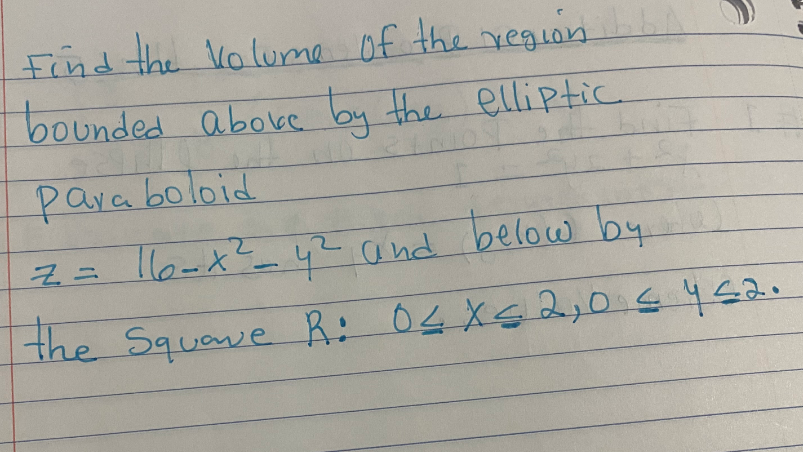 Find the Volume of the region
bounded above by the elliptic
paraboloid
z = 16-x²-y² and below by
the Square R: 0≤ x ≤ 2, 0 ≤ y ≤ 2.